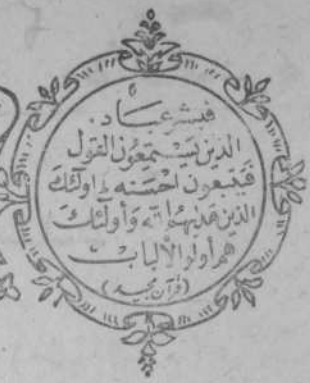 فبشر عباد
الذين يستمعون القول
فيتبعون احسنه اولئك
الذين هديهم الله وأولئك
هم أولوا الألباب
(قرآن مجيد)